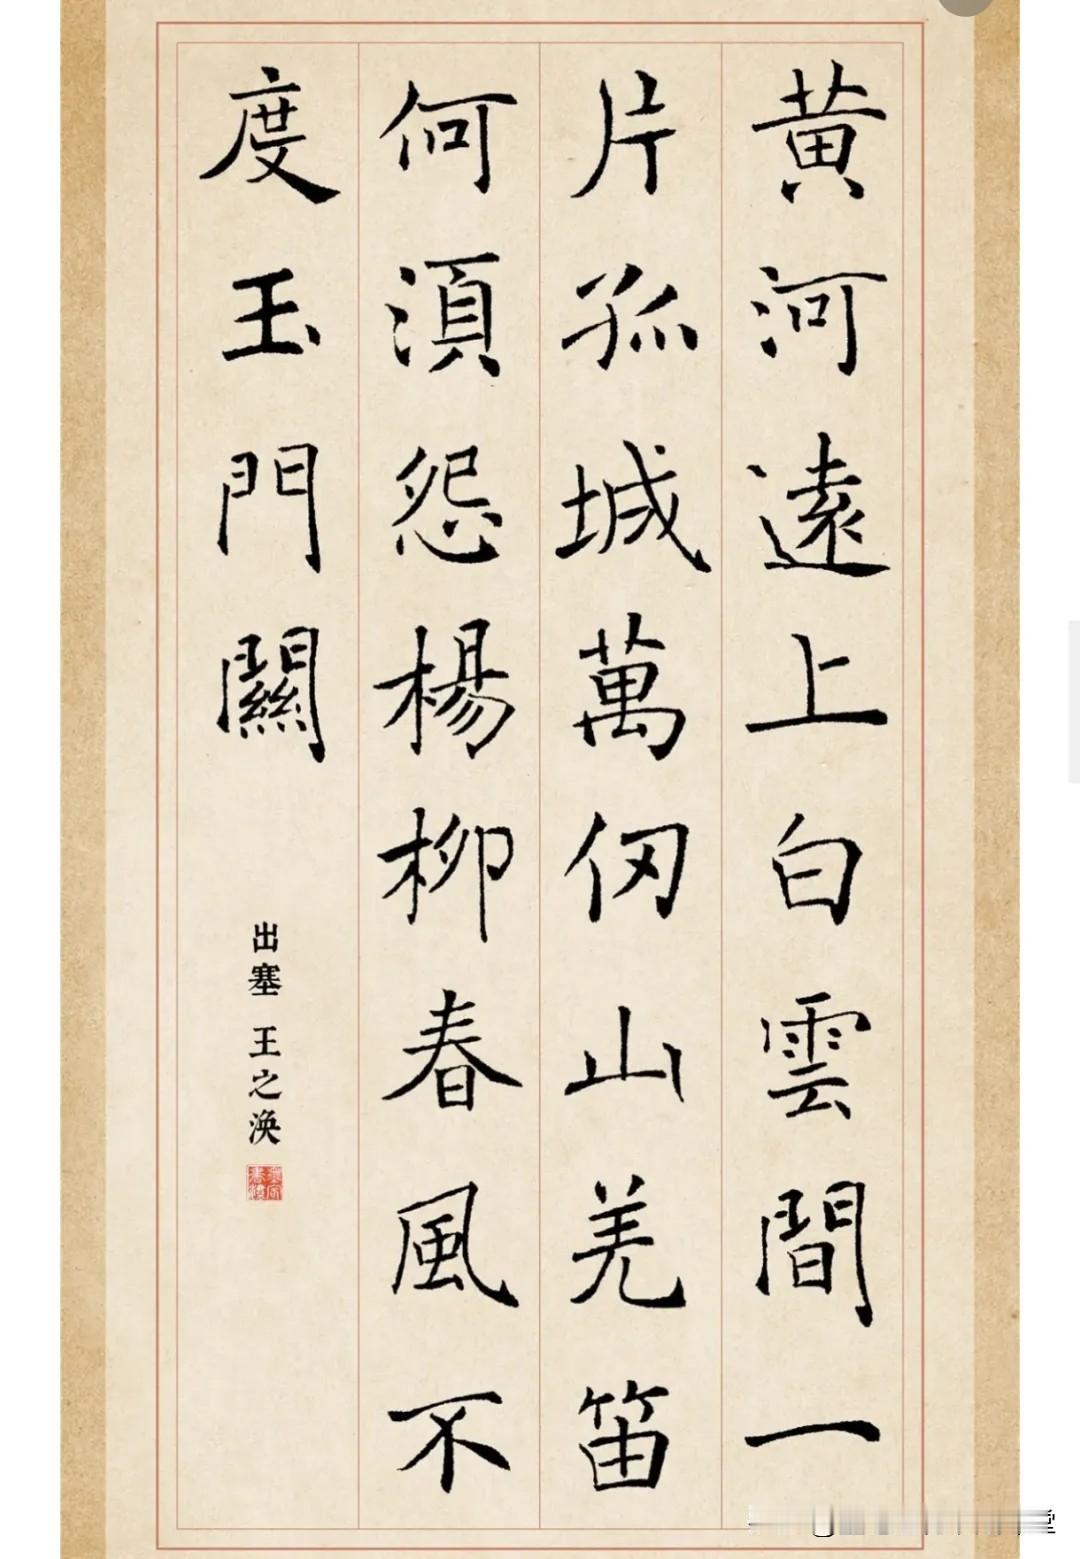 黄河遠上白雲間一
片孤城萬仞山羌笛
何須怨楊柳春風不
度玉門關
出塞 王之涣